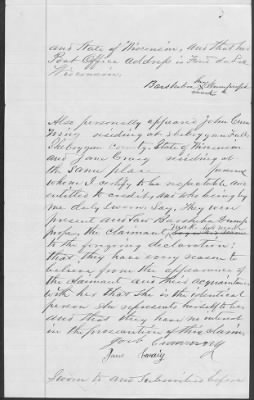 and State of Wisconsin, and that her
Post Office address is Fond du Lac
Wisconsin.
her
mark
Also personally appeared John
residing at Sheboygan Falls
Sheboygan County, State of Wisconsin
and Jane Craig residing at
the same place persons
whom I certify to be respectable and
entitled to credit, and who being by
me duly sworn say, They were
present and saw
the claimant mark her mark
to the foregoing declaration;
that they have every reason to
believe from the appearance of
the claimant and their acquaintance
with her that she is the identical
person she represents herself to be
and that they have no interest
in the prosecution of this claim
Jane Craig
Sworn to and subscribed before